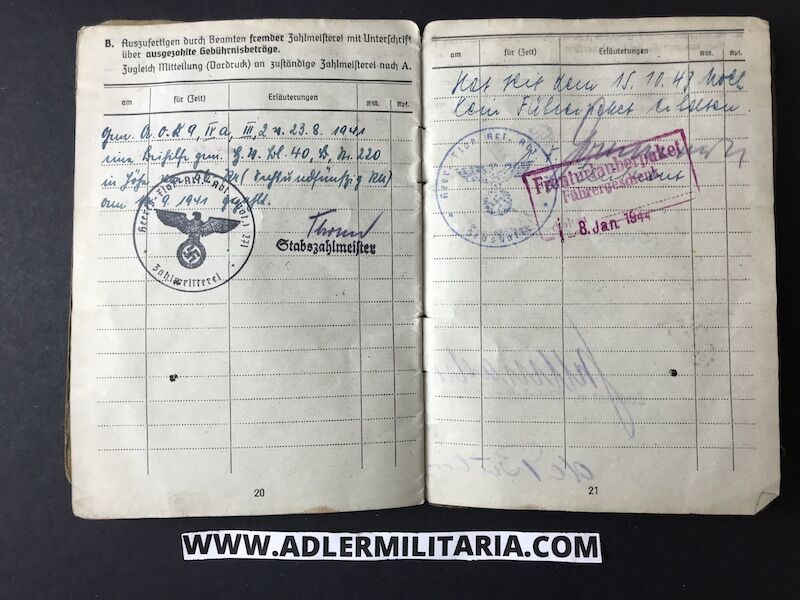 B. Auszufertigen durch Beamten fremder Zahlmeisterei mit Unterschrift
über ausgezahlte Gebührnisbeträge.
Zugleich Mitteilung (Vordruck) an zuständige Zahlmeisterei nach A.
am für (Zeit) Erläuterungen RM. Rpf.
Gem. A.O.K 9, IVa, III, 2 v. 23.8.1941
eine Beihilfe gem. H.V. Bl. 40, B, Nr. 220
in Höhe
am 9. 1941 gezahlt.
Heeres-Flak-Art.-Abt. (mot.) 271
Zahlmeisterei
Stabszahlmeister
20
am für (Zeit) Erläuterungen RM. Rpf.
Hat seit dem 15.10.43 noch
kein Führerpaket erhalten.
Heeres-Flak-Art.-Abt.
Fronturlauberpaket
Führergeschenk
8. Jan. 1944
21
WWW.ADLERMILITARIA.COM